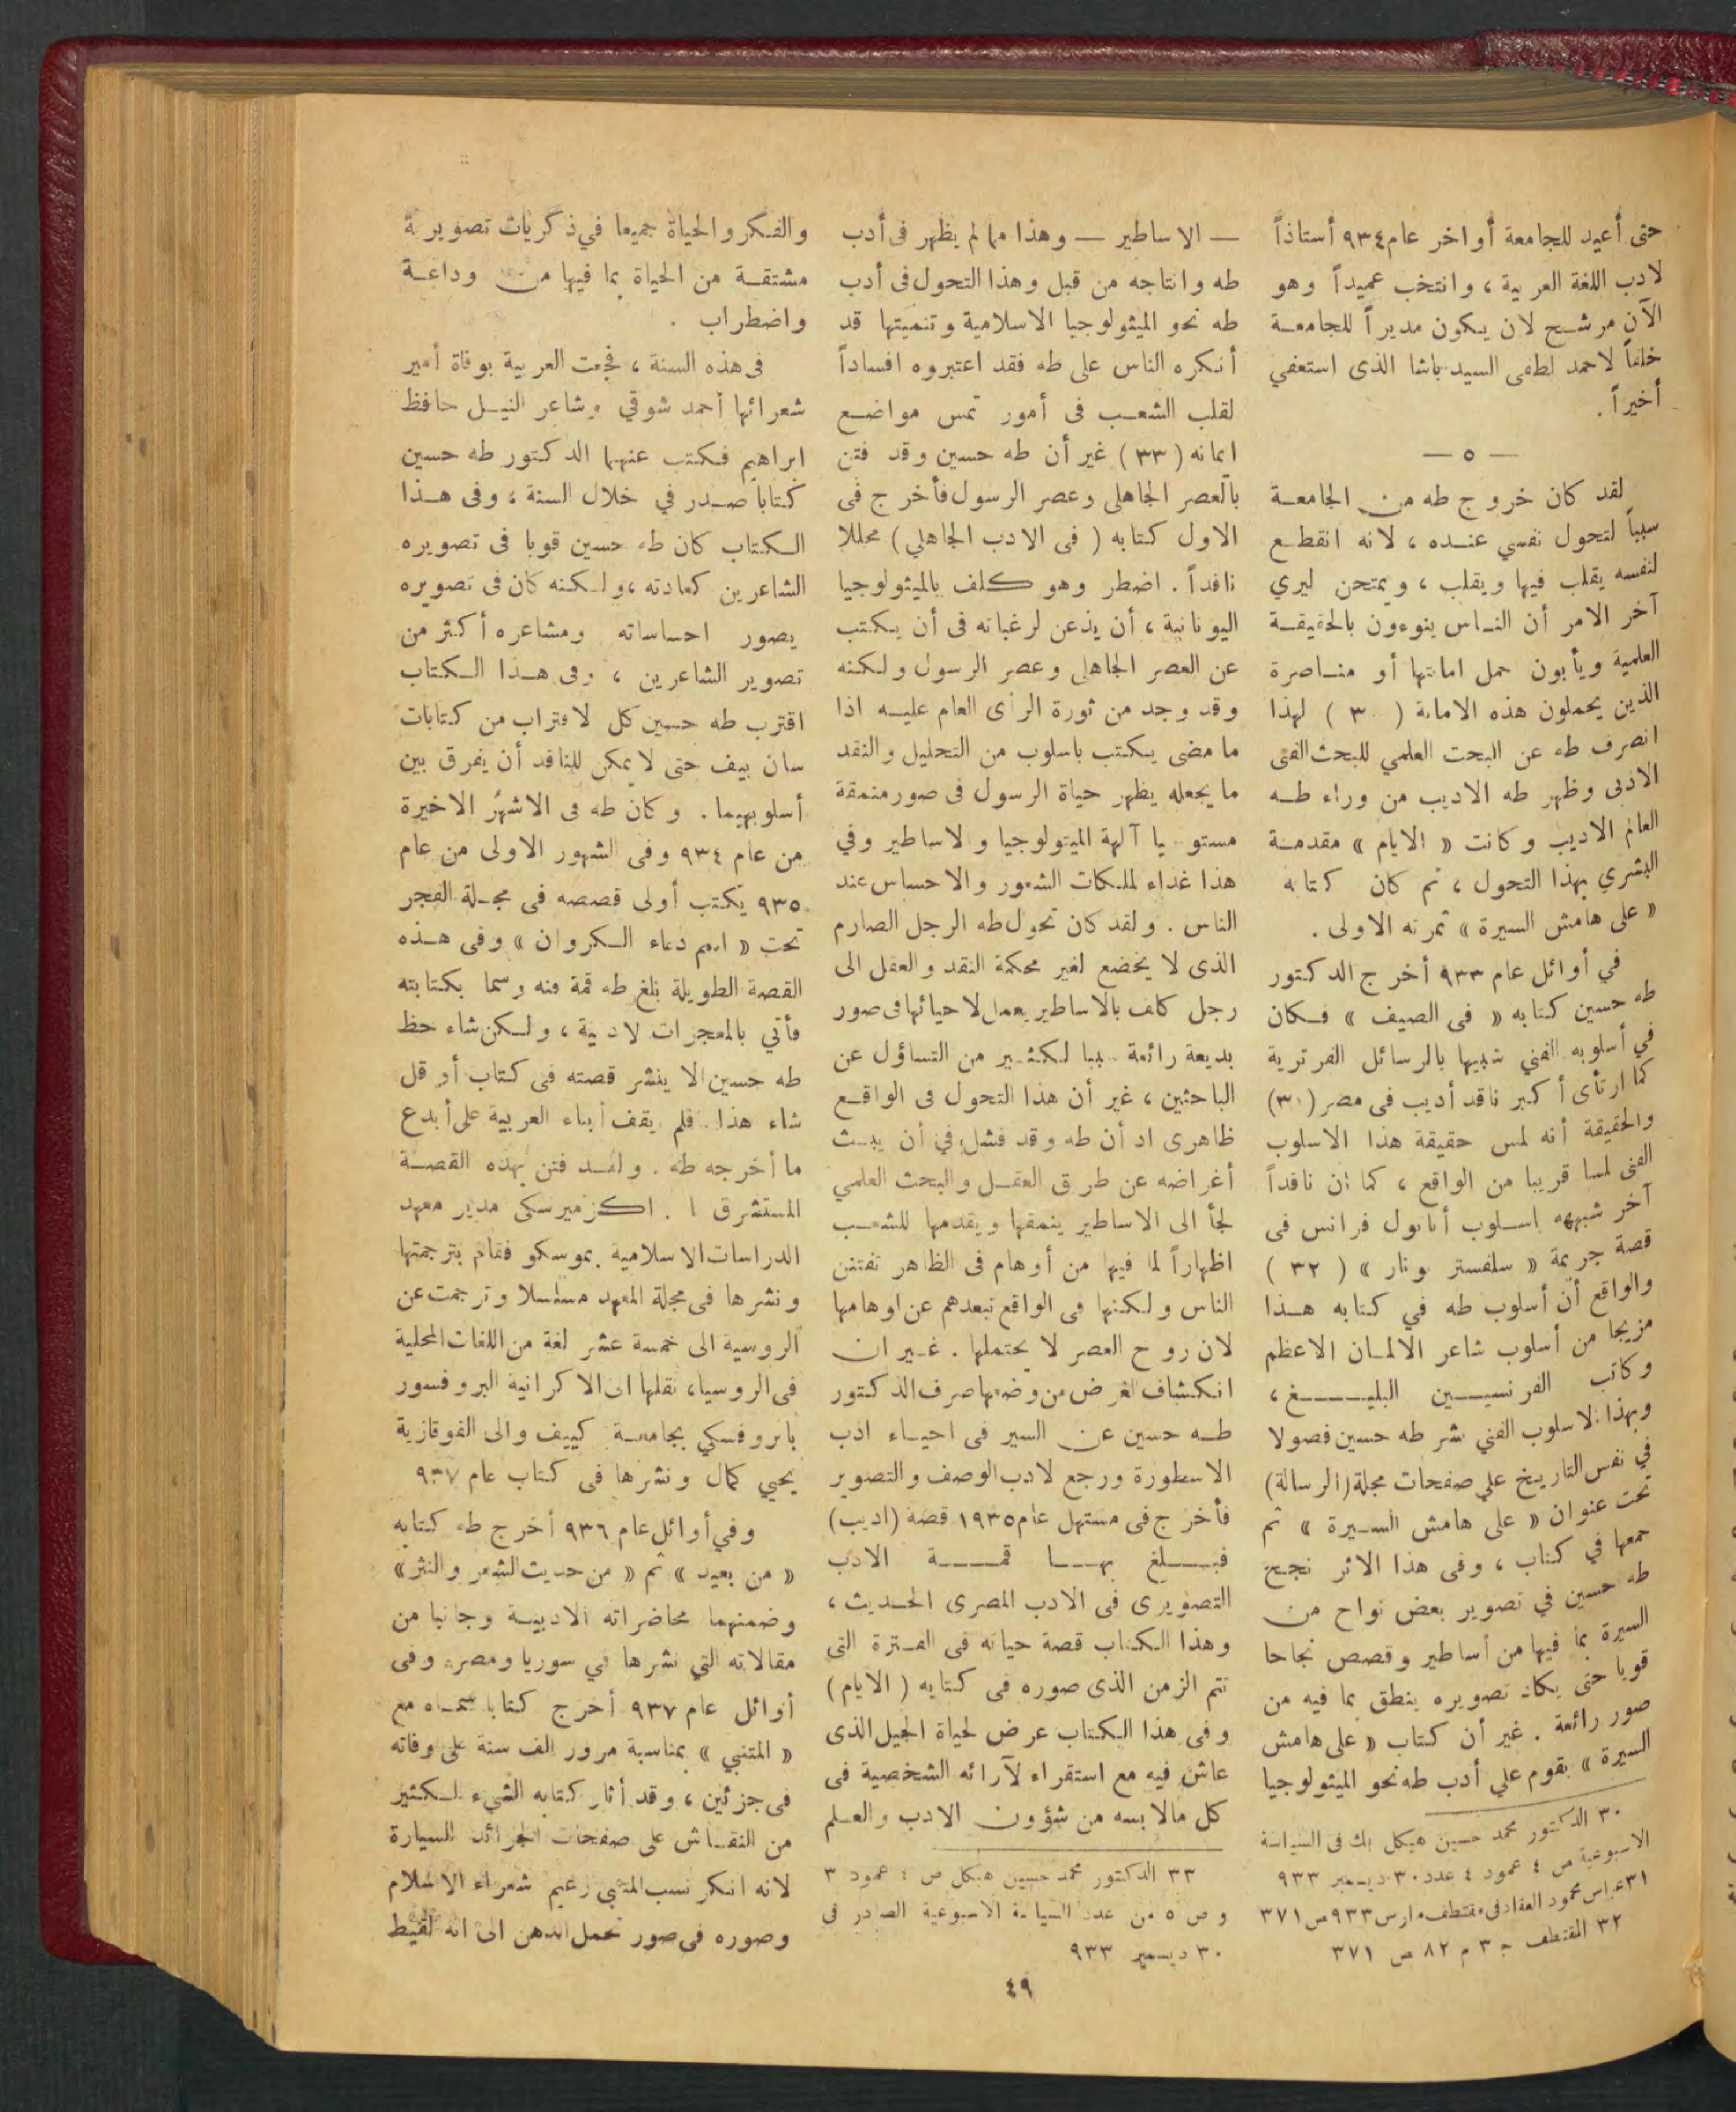 حتى أعيد للجامعة أواخر عام ٩٣٤ أستاذاً
لادب اللغة العربية ، وانتخب عميداً وهو
الآن مرشح لان يكون مديراً للجامعة
خلفاً لاحمد لطفى السيد باشا الذى استعفي
أخيراً .
— ٥ —
لقد كان خروج طه من الجامعة
سبباً لتحول نفسي عنده ، لانه انقطع
لنفسه يقلب فيها ويقلب ، ويمتحن ليري
آخر الامر أن الناس ينوءون بالحقيقة
العلمية ويأبون حمل امانتها أو مناصرة
الذين يحملون هذه الامانة ( ٣ ) لهذا
انصرف طه عن البحث العلمي للبحث الفنى
الادبى وظهر طه الاديب من وراء طه
العالم الاديب وكانت « الايام » مقدمة
البشري بهذا التحول ، ثم كان كتابه
« على هامش السيرة » ثمرته الاولى .
في أوائل عام ٩٣٣ أخرج الدكتور
طه حسين كتابه « فى الصيف » فكان
في أسلوبه الفني شبيها بالرسائل الفرترية
كما ارتأى أكبر ناقد أديب فى مصر (٣١)
والحقيقة أنه لمس حقيقة هذا الاسلوب
الفنى لمسا قريبا من الواقع ، كما ان ناقداً
آخر شبهه اسلوب أناتول فرانس فى
قصة جريمة « سلفستر بونار » ( ٣٢ )
والواقع أن أسلوب طه في كتابه هذا
مزيجا من أسلوب شاعر الالمان الاعظم
وكاتب الفرنسيين البليغ ،
وبهذا الاسلوب الفني نشر طه حسين فصولا
في نفس التاريخ علي صفحات مجلة (الرسالة)
تحت عنوان « على هامش السيرة » ثم
جمعها في كتاب ، وفى هذا الاثر نجح
طه حسين في تصوير بعض نواح من
السيرة بما فيها من أساطير وقصص نجاحا
قويا حتى يكاد تصويره ينطق بما فيه من
صور رائعة . غير أن كتاب « على هامش
السيرة » يقوم علي أدب طه نحو الميثولوجيا
٣٠ الدكتور محمد حسين هيكل بك فى السياسة
الاسبوعية ص ٤ عمود ٤ عدد ٣٠ ديسمبر ٩٣٣
٣١ عباس محمود العقاد فى مقتطف مارس ٩٣٣ ص ٣٧١
٣٢ المقتطف ج ٣ م ٨٢ ص ٣٧١
— الاساطير — وهذا ما لم يظهر فى أدب
طه وانتاجه من قبل وهذا التحول فى أدب
طه نحو الميثولوجيا الاسلامية وتنميتها قد
أنكره الناس على طه فقد اعتبروه افساداً
لقلب الشعب فى أمور تمس مواضع
ايمانه ( ٣٣ ) غير أن طه حسين وقد فتن
بالعصر الجاهلى وعصر الرسول فأخرج فى
الاول كتابه ( فى الادب الجاهلي ) محللا
ناقداً . اضطر وهو كلف بالميثولوجيا
اليونانية ، أن يذعن لرغباته فى أن يكتب
عن العصر الجاهلى وعصر الرسول ولكنه
وقد وجد من ثورة الرأى العام عليه اذا
ما مضى يكتب باسلوب من التحليل والنقد
ما يجعله يظهر حياة الرسول فى صور منمقة
آلهة الميثولوجيا والاساطير وفي
هذا غذاء لملكات الشعور والاحساس عند
الناس . ولقد كان تحول طه الرجل الصارم
الذى لا يخضع لغير محكمة النقد والعقل الى
رجل كلف بالاساطير يعمل لاحيائها فى صور
بديعة رائعة سببا لكثير من التساؤل عن
الباحثين ، غير أن هذا التحول فى الواقع
ظاهرى اذ أن طه وقد فشل فى أن يبث
أغراضه عن طريق العقل والبحث العلمي
لجأ الى الاساطير ينمقها ويقدمها للشعب
اظهاراً لما فيها من أوهام فى الظاهر تفتتن
الناس ولكنها فى الواقع تبعدهم عن اوهامها
لان روح العصر لا يحتملها . غير ان
انكشاف الغرض من وضعها صرف الدكتور
طه حسين عن السير فى احياء ادب
الاسطورة ورجع لادب الوصف والتصوير
فأخرج فى مستهل عام ١٩٣٥ قصة (اديب)
فبلغ بها قمة الادب
التصويرى فى الادب المصرى الحديث ،
وهذا الكتاب قصة حياته فى الفترة التى
تتم الزمن الذى صوره فى كتابه ( الايام )
وفى هذا الكتاب عرض لحياة الجيل الذى
عاش فيه مع استقراء لآرائه الشخصية فى
كل مالابسه من شؤون الادب والعلم
٣٣ الدكتور محمد حسين هيكل ص ٤ عمود ٣
و ص ٥ من عدد السياسة الاسبوعية الصادر فى
٣٠ ديسمبر ٩٣٣
والفكر والحياة جميعا في ذكريات تصويرية
مشتقة من الحياة بما فيها من وداعة
واضطراب .
فى هذه السنة ، فجعت العربية بوفاة أمير
شعرائها أحمد شوقي وشاعر النيل حافظ
ابراهيم فكتب عنهما الدكتور طه حسين
كتاباً صدر في خلال السنة ، وفى هذا
الكتاب كان طه حسين قويا فى تصويره
الشاعرين كعادته ، ولكنه كان فى تصويره
يصور احساساته ومشاعره أكثر من
تصوير الشاعرين ، وفى هذا الكتاب
اقترب طه حسين كل لاقتراب من كتابات
سان بيف حتى لا يمكن للناقد أن يفرق بين
أسلوبيهما . وكان طه فى الاشهر الاخيرة
من عام ٩٣٤ وفى الشهور الاولى من عام
٩٣٥ يكتب أولى قصصه فى مجلة الفجر
تحت « دعاء الكروان » وفى هذه
القصة الطويلة بلغ طه قمة فنه وسما بكتابته
فأتي بالمعجزات لادبية ، ولكن شاء حظ
طه حسين الا ينشر قصته فى كتاب أو قل
شاء هذا . فلم يقف أبناء العربية على أبدع
ما أخرجه طه . ولقد فتن بهذه القصة
المستشرق ا . اكزميرسكى مدير معهد
الدراسات الاسلامية بموسكو فقام بترجمتها
ونشرها فى مجلة المعهد مسلسلا وترجمت عن
الروسية الى خمسة عشر لغة من اللغات المحلية
فى الروسيا ، نقلها الى الاكرانية البروفسور
باتروفسكي بجامعة كييف والى القوقازية
يحيي كمال ونشرها فى كتاب عام ٩٣٧
وفي أوائل عام ٩٣٦ أخرج طه كتابه
« من بعيد » ثم « من حديث الشعر والنثر »
وضمنهما محاضراته الادبية وجانبا من
مقالاته التي نشرها في سوريا ومصر وفى
أوائل عام ٩٣٧ أخرج كتابا سماه مع
« المتنبي » بمناسبة مرور الف سنة على وفاته
فى جزئين ، وقد أثار كتابه الشيء لكثير
من النقاش على صفحات الجرائد السيارة
لانه انكر نسب المتنبى زعيم شعراء الاسلام
وصوره فى صور تحمل الذهن الى انه لقيط
٤٩